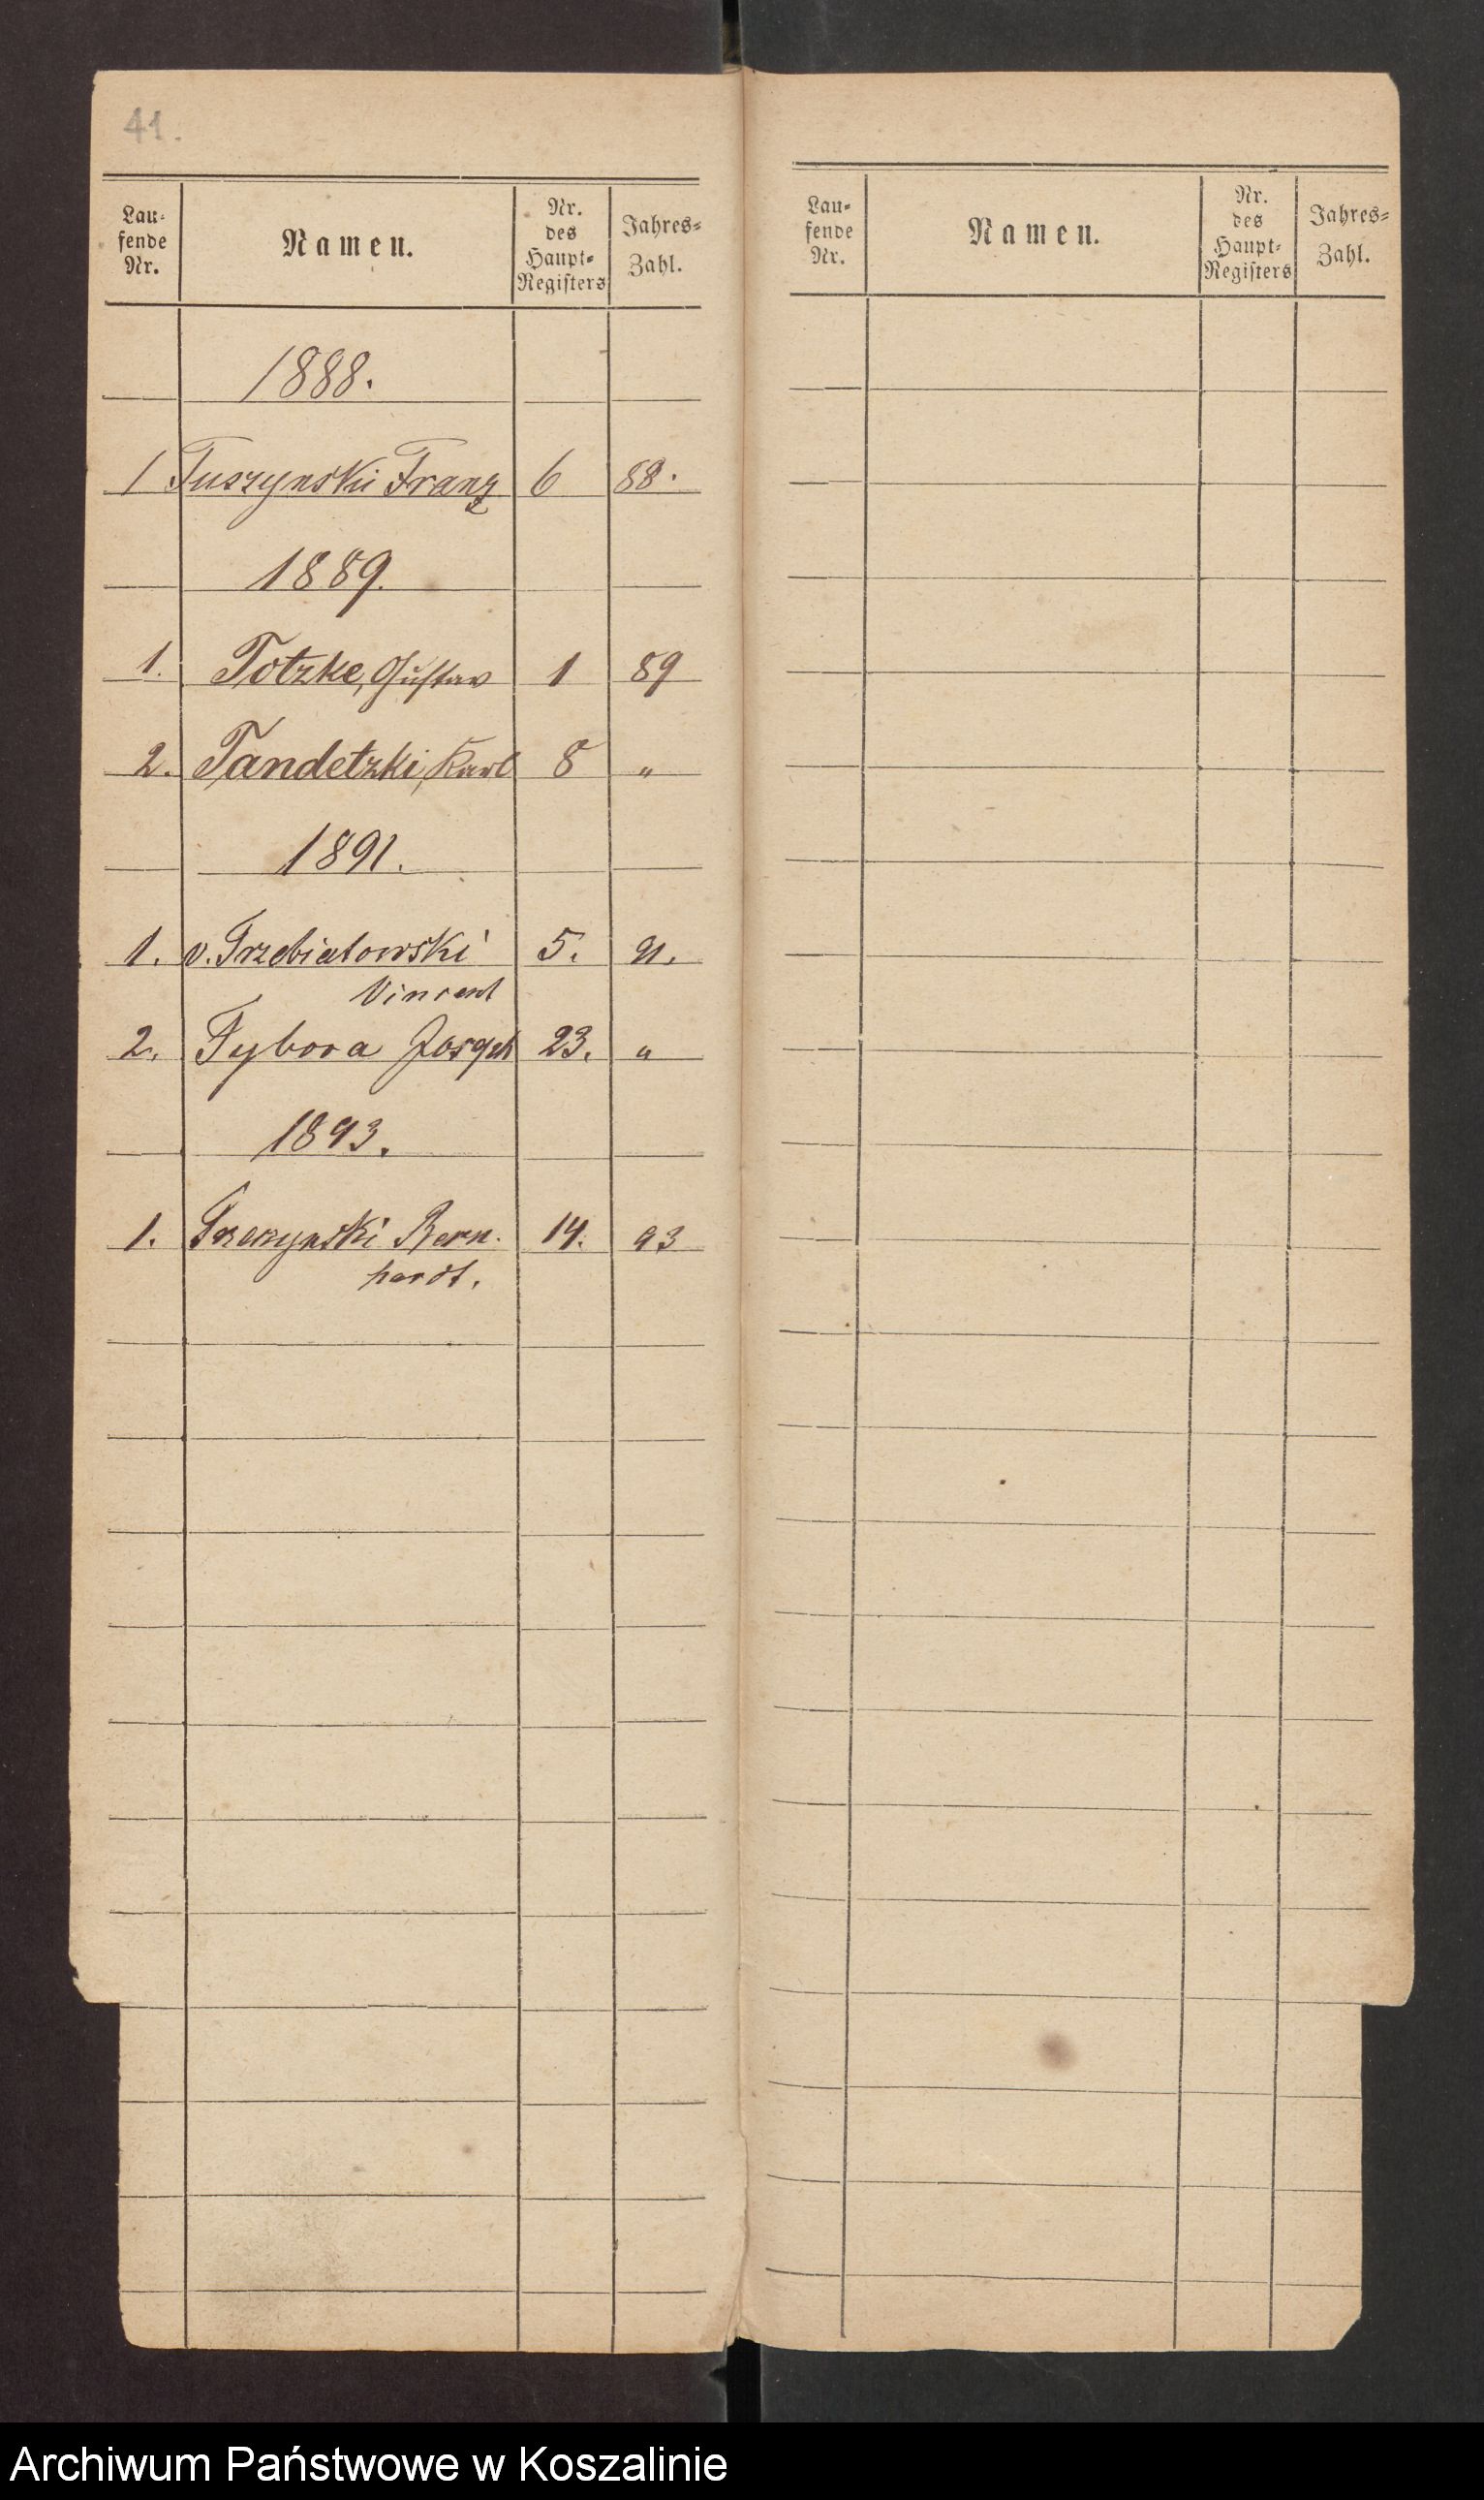 41.
Lau-
fende
Nr.
Namen.
Nr.
des
Haupt-
Registers
Jahres-
Zahl.
1888.
1 Tuszynski Franz 6 88.
1889.
1. Totzke, Gustav 1 89
2. Tandetzki, Karl 8 "
1891.
1. v. Trzebiatowski 5. 91.
Vincent
2. Tybora Joseph 23. "
1893.
1. Bern- 14. 93
hardt.
Lau-
fende
Nr.
Namen.
Nr.
des
Haupt-
Registers
Jahres-
Zahl.
Archiwum Państwowe w Koszalinie